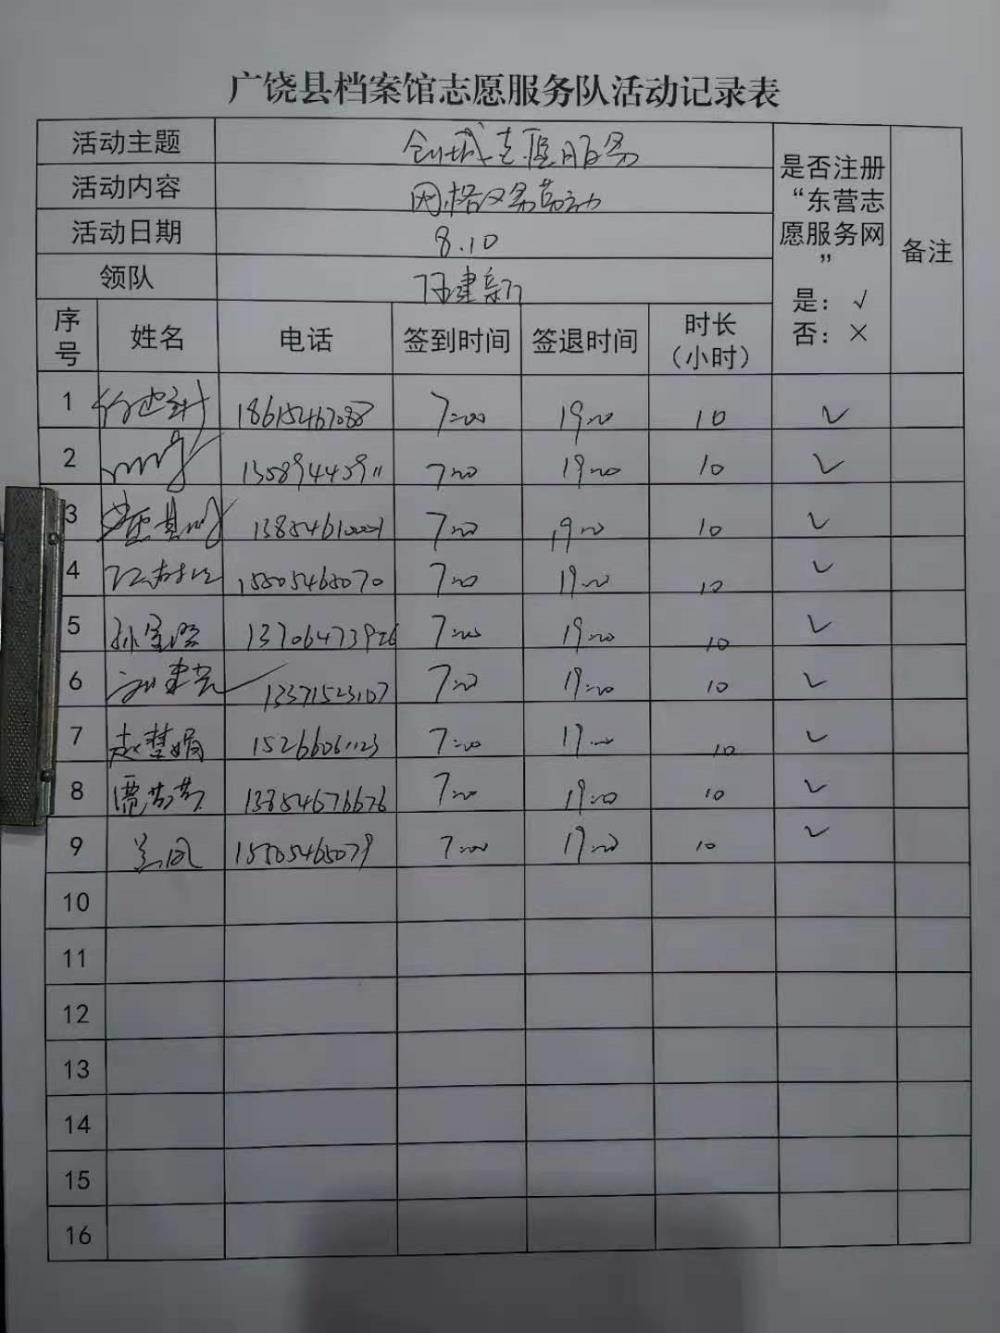 广饶县档案馆志愿服务队活动记录表
活动主题 创城志愿服务
活动内容 网格义务劳动
活动日期 8.10
领队 建新
是否注册
“东营志
愿服务网
”
是：√
否：×
备注
序号 姓名 电话 签到时间 签退时间 时长（小时）
1 18615467088 7:00 19:00 10 ✓
2 7:00 19:00 10 ✓
3 7:00 19:00 10 ✓
4 15505465070 7:00 19:00 10 ✓
5 孙宝 13706473926 7:00 19:00 10 ✓
6 刘建 13371523107 7:00 19:00 10 ✓
7 赵慧娟 15266061123 7:00 10 ✓
8 贾芳芳 13854676676 7:00 19:00 10 ✓
9 兰凤 15505465079 7:00 19:00 10 ✓
10
11
12
13
14
15
16